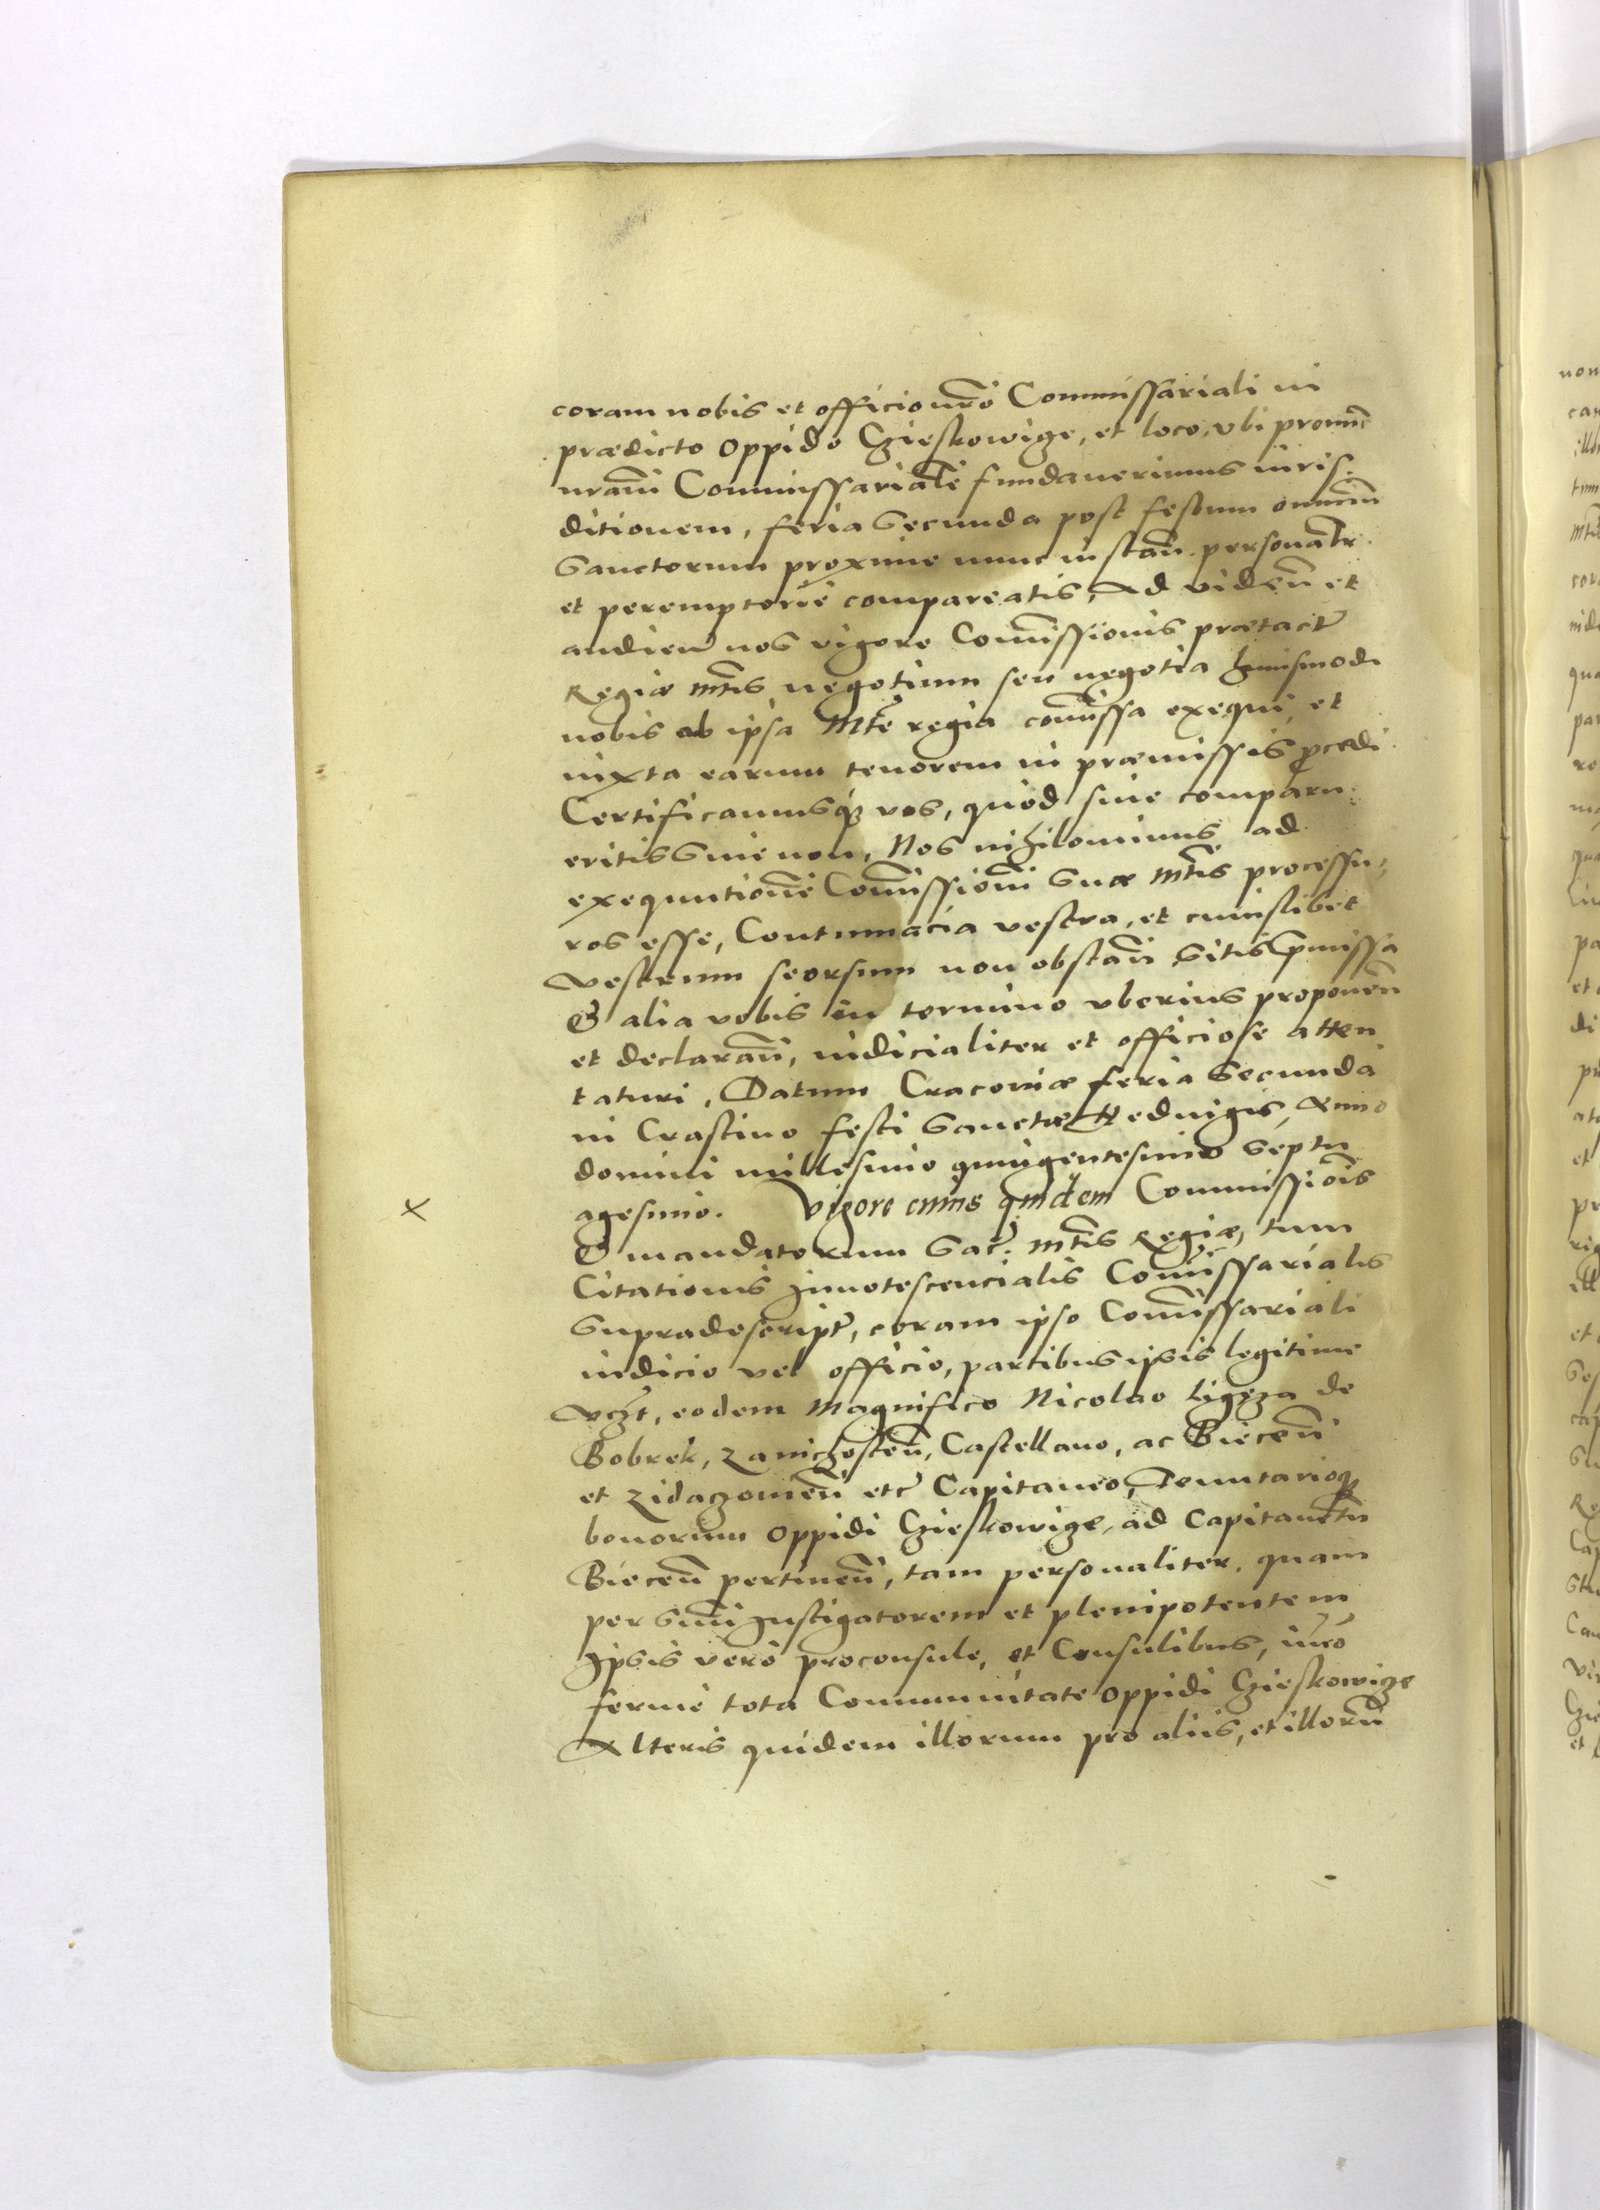 coram nobis et officio nr̃o Commissariali in
prædicto oppido Czieskowicze, et loco, vbi pronunc̃
nram̃ Commissarialẽ fundauerimus iuris-
ditionem, feria Secunda post festum omniũ
Sanctorum proxime nunc instañ. personalr̃
et peremptoriè compareatis, Ad videñ et
audieñ nos vigore Com̃issionis prætactæ̃
Regiæ Mtis̃ negotium seu negotia huiusmodi
nobis ab ipsa Mtẽ regia com̃issa exequi et
iuxta earum tenorem in præmissis p̃cædi
Certificamusq₃ vos, quòd siue comparu-
eritis Siue non, Nos nihilominus ad
exequutionẽ Com̃issioñi Suæ Mtis̃ processu-
ros esse, Contumacia vestra, et cuiuslibet
vestrum seorsum non obstañ Sitis p̃missa
& alia vobis in termino vberius proponeñ
et declarañ, iudicialiter et officiose atten
taturi. Datum Cracouiæ feria Secunda
in Crastino festi Sanctæ Heduigis, Anno
domini millesimo quingentesimo Septu
agesimo. Vigore cuius quidem Commissiõis
x
& mandatorum Sac̃. Mtis̃ Regiæ, tum
Citationis Innotescencialis Com̃issarialis
Supradescript̃, coram ipso Com̃issariali
iudicio vel officio, partibus ipsis legitime
vtz̃t, eodem Magnifico Nicolao Ligęza de
Bobrek, Zawichosteñ, Castellano, ac Bieceñ
et Zidaczowieñ etc̃ Capitaneo, Tenutarioq₃
bonorum oppidi Czieskowicze, ad Capitaneatũ
Bieceñ pertineñ, tam personaliter, quam
per Suũ Instigatorem et plenipotentem,
Ipsis verò proconsule, et Consulibus, im̃o
fermè tota Communitate oppidi Czieskowicze
Alteris quidem illorum pro aliis, et illorũ